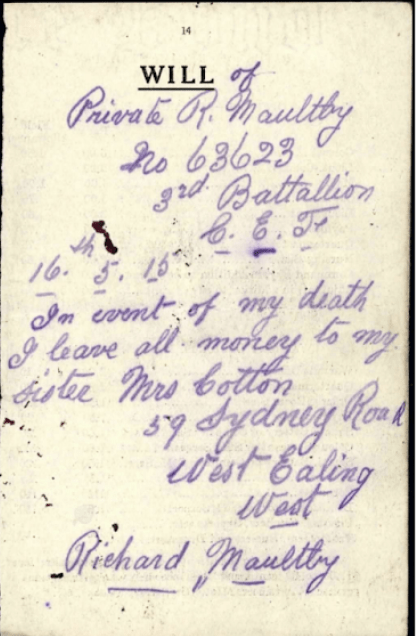 14
WILL of
Private R. Maultby
No 63623
3rd Battallion
C. E. F.
16.th 5. 15
In event of my death
I leave all money to my
sister Mrs Cotton
59 Sydney Road
West Ealing
West
Richard Maultby